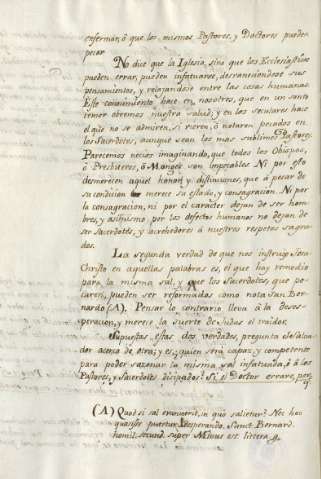 enferman, ó que los mismos Pastores, y Doctores pueden
pecar.
No dice que la Iglesia, sino que los Eclesiasticos
pueden errar, pueden infatuarse, desvaneciendose sus
pensamientos, y relajandose entre las cosas humanas.
Este conocimiento hace en nosotros, que en un santo
temor obremos nuestra salud; y en los seculares hace
el que no se admiren, si vieren, ó notaren pecados en
los Sacerdotes, aunque sean los mas sublimes Pastores.
Parecemos necios imaginando, que todos los Obispos,
ó Presbiteros, ó Monges son impecables. Ni por esto
desmerecen aquel honor, y distinciones, que á pesar de
su condicion merece su estado, y consagracion. Ni por
la consagracion, ni por el carácter dejan de ser hom
bres, y asimismo por los defectos humanos no dejan de
ser Sacerdotes, y acrehedores á nuestros respetos sagra
dos.
La segunda verdad de que nos instruye Jesu
Christo en aquellas palabras es, el que hay remedio
para la misma sal, y que los Sacerdotes que pe
caren, pueden ser reformados como nota San Ber
nardo (A). Pensar lo contrario lleva á la deses
peracion, y merece la suerte de Judas el traidor.
Supuestas estas dos verdades, pregunta el Salva
dor acerca de otra; y es, quien será capaz, y competente
para poder sazonar la misma sal infatuada, ó á los
Pastores, y Sacerdotes disipados? Si el Doctor errare, por
(A) Quod si sal evanuerit, in quo salietur? Nec hoc
quasi desperando. Sanct. Bernard.
homil. secund. super Missus est. littera g.